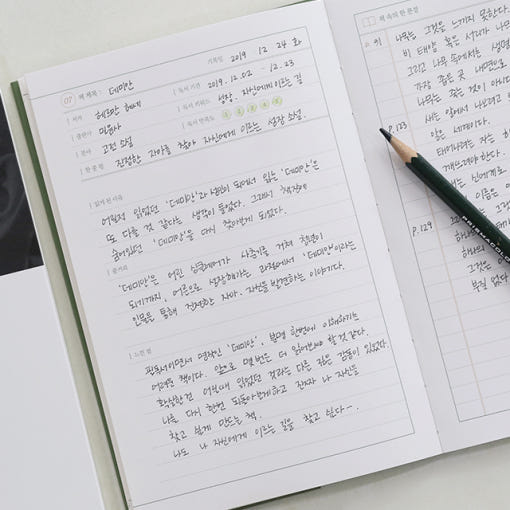 기록일 2019 12 24 화
07 책 제목 : 데미안
저자 헤르만 헤세
독서 기간 2019.12.02 - 12.23
출판사 민음사
독서 키워드 성장. 자신에게 이르는 길
분야 고전 소설
독서 만족도
한 줄 평 진정한 자아를 찾아 자신에게 이르는 성장 소설.
읽게 된 이유
어릴적 읽었던 '데미안'과 성인이 되어서 읽는 '데미안'은
또 다를 것 같다는 생각이 들었다. 그래서 책장에
숨어있던 '데미안'을 다시 찾아보게 되었다.
줄거리
'데미안'은 어린 싱클레어가 사춘기를 거쳐 청년이
되기까지, 어른으로 성장해가는 과정에서 '데미안'이라는
인물을 통해 진정한 자아, 자신을 발견하는 이야기다.
느낀 점
필독서이면서 명작인 '데미안', 분명 한번에 이해하기는
어려운 책이다. 앞으로 몇번은 더 읽어봐야 할 것 같다.
확실한건 어릴때 읽었던 것과는 다른 깊은 감동이 있었다.
나를 다시 한번 되돌아보게하고 진짜 나 자신을
찾고 싶게 만드는 책.
나도 나 자신에게 이르는 길을 찾고 싶다~.
책 속의 한 문장
P. 91
나무는 그것을 느끼지 못한다.
비 태양 혹은 서리가 나무
그리고 나무 속에서는 생명
가장 좁은 곳 내면으로
나무는 죽는 것이 아니다
P. 123
새는 알에서 나오려고
알은 세계이다.
태어나려는 자는 하
깨뜨려야 한다.
새는 신에게로
이름은
P. 129
그것은
PRISMACOLOR